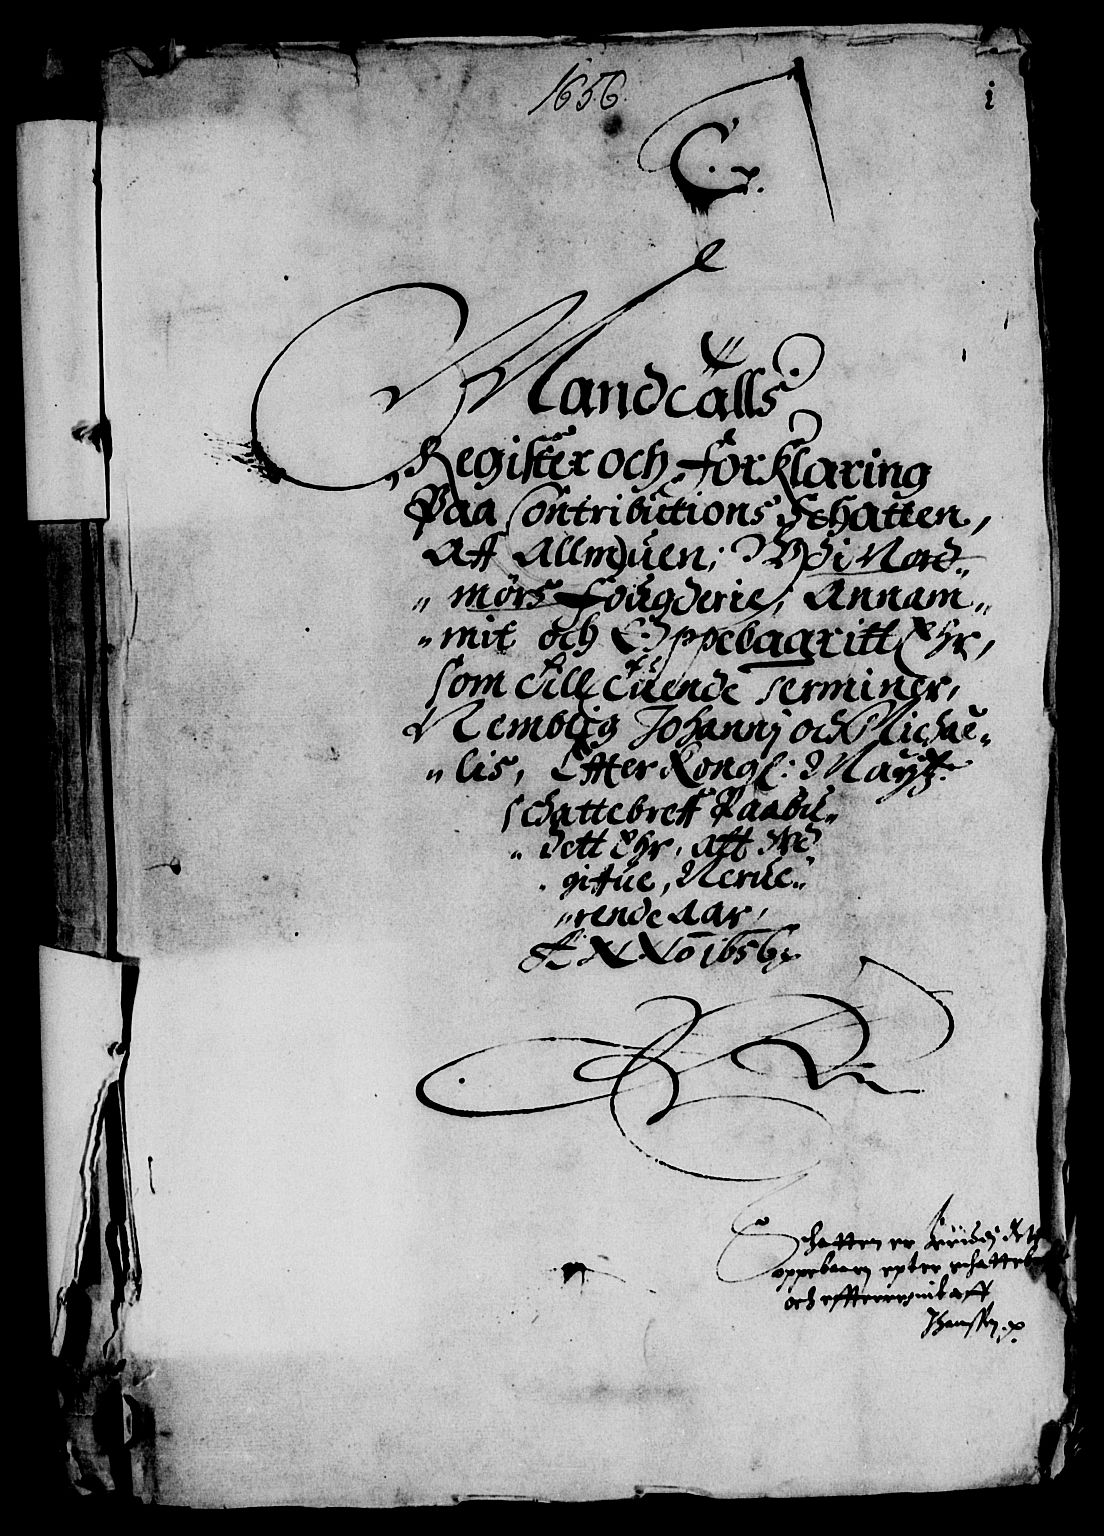 1656
i
C.
Mandtalls
Register och forKlaring
Paa Contributions Schatten,
Aff Allmuen; Vdi Nord„
„mørs fougderie; Annam„
„mit och Oppebaaritt Ehr,
som till tuende Terminer,
Nemblig Johannj och Michae„
„lis, Efter Kongl: Maytz:
schattebreff Paabu„
„dett Ehr, aff
gifue, Nerue„
„rende Aar,
ANNO 1656
Schatten er
oppebaaren epter schatteb
och effter aff